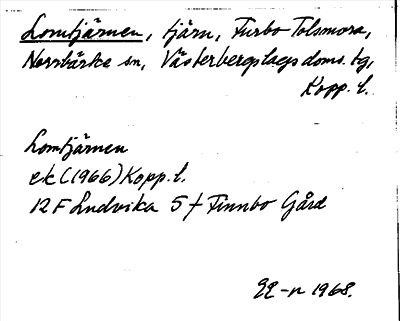 Lomtjärnen, tjärn, Furbo Tolsmora,
Norrbärke sn, Västerbergslags doms. tg,
Kopp. l.
Lomtjärnen
ek (1966) Kopp. l.
12 F Ludvika 5 f Finnbo Gård
1968.